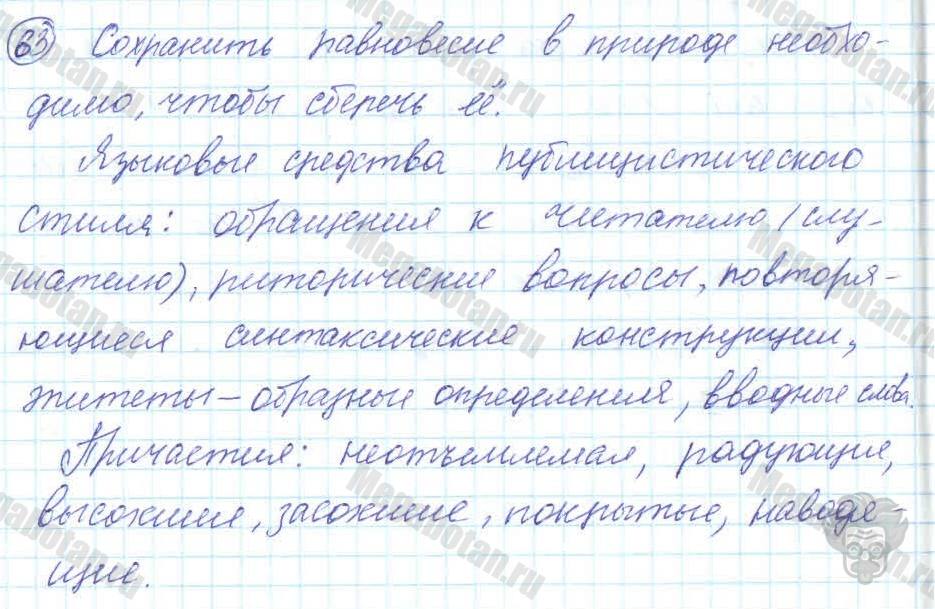 63 Сохранить равновесие в природе необхо-
димо, чтобы сберечь её.
Языковые средства публицистического
стиля: обращения к читателю (слу-
шателю), риторические вопросы, повторя-
ющиеся синтаксические конструкции,
эпитеты – образные определения, вводные слова.
Причастия: неотъемлемая, радующие,
высохшие, засохшие, покрытые, наводя-
щие.
Megabotan.ru